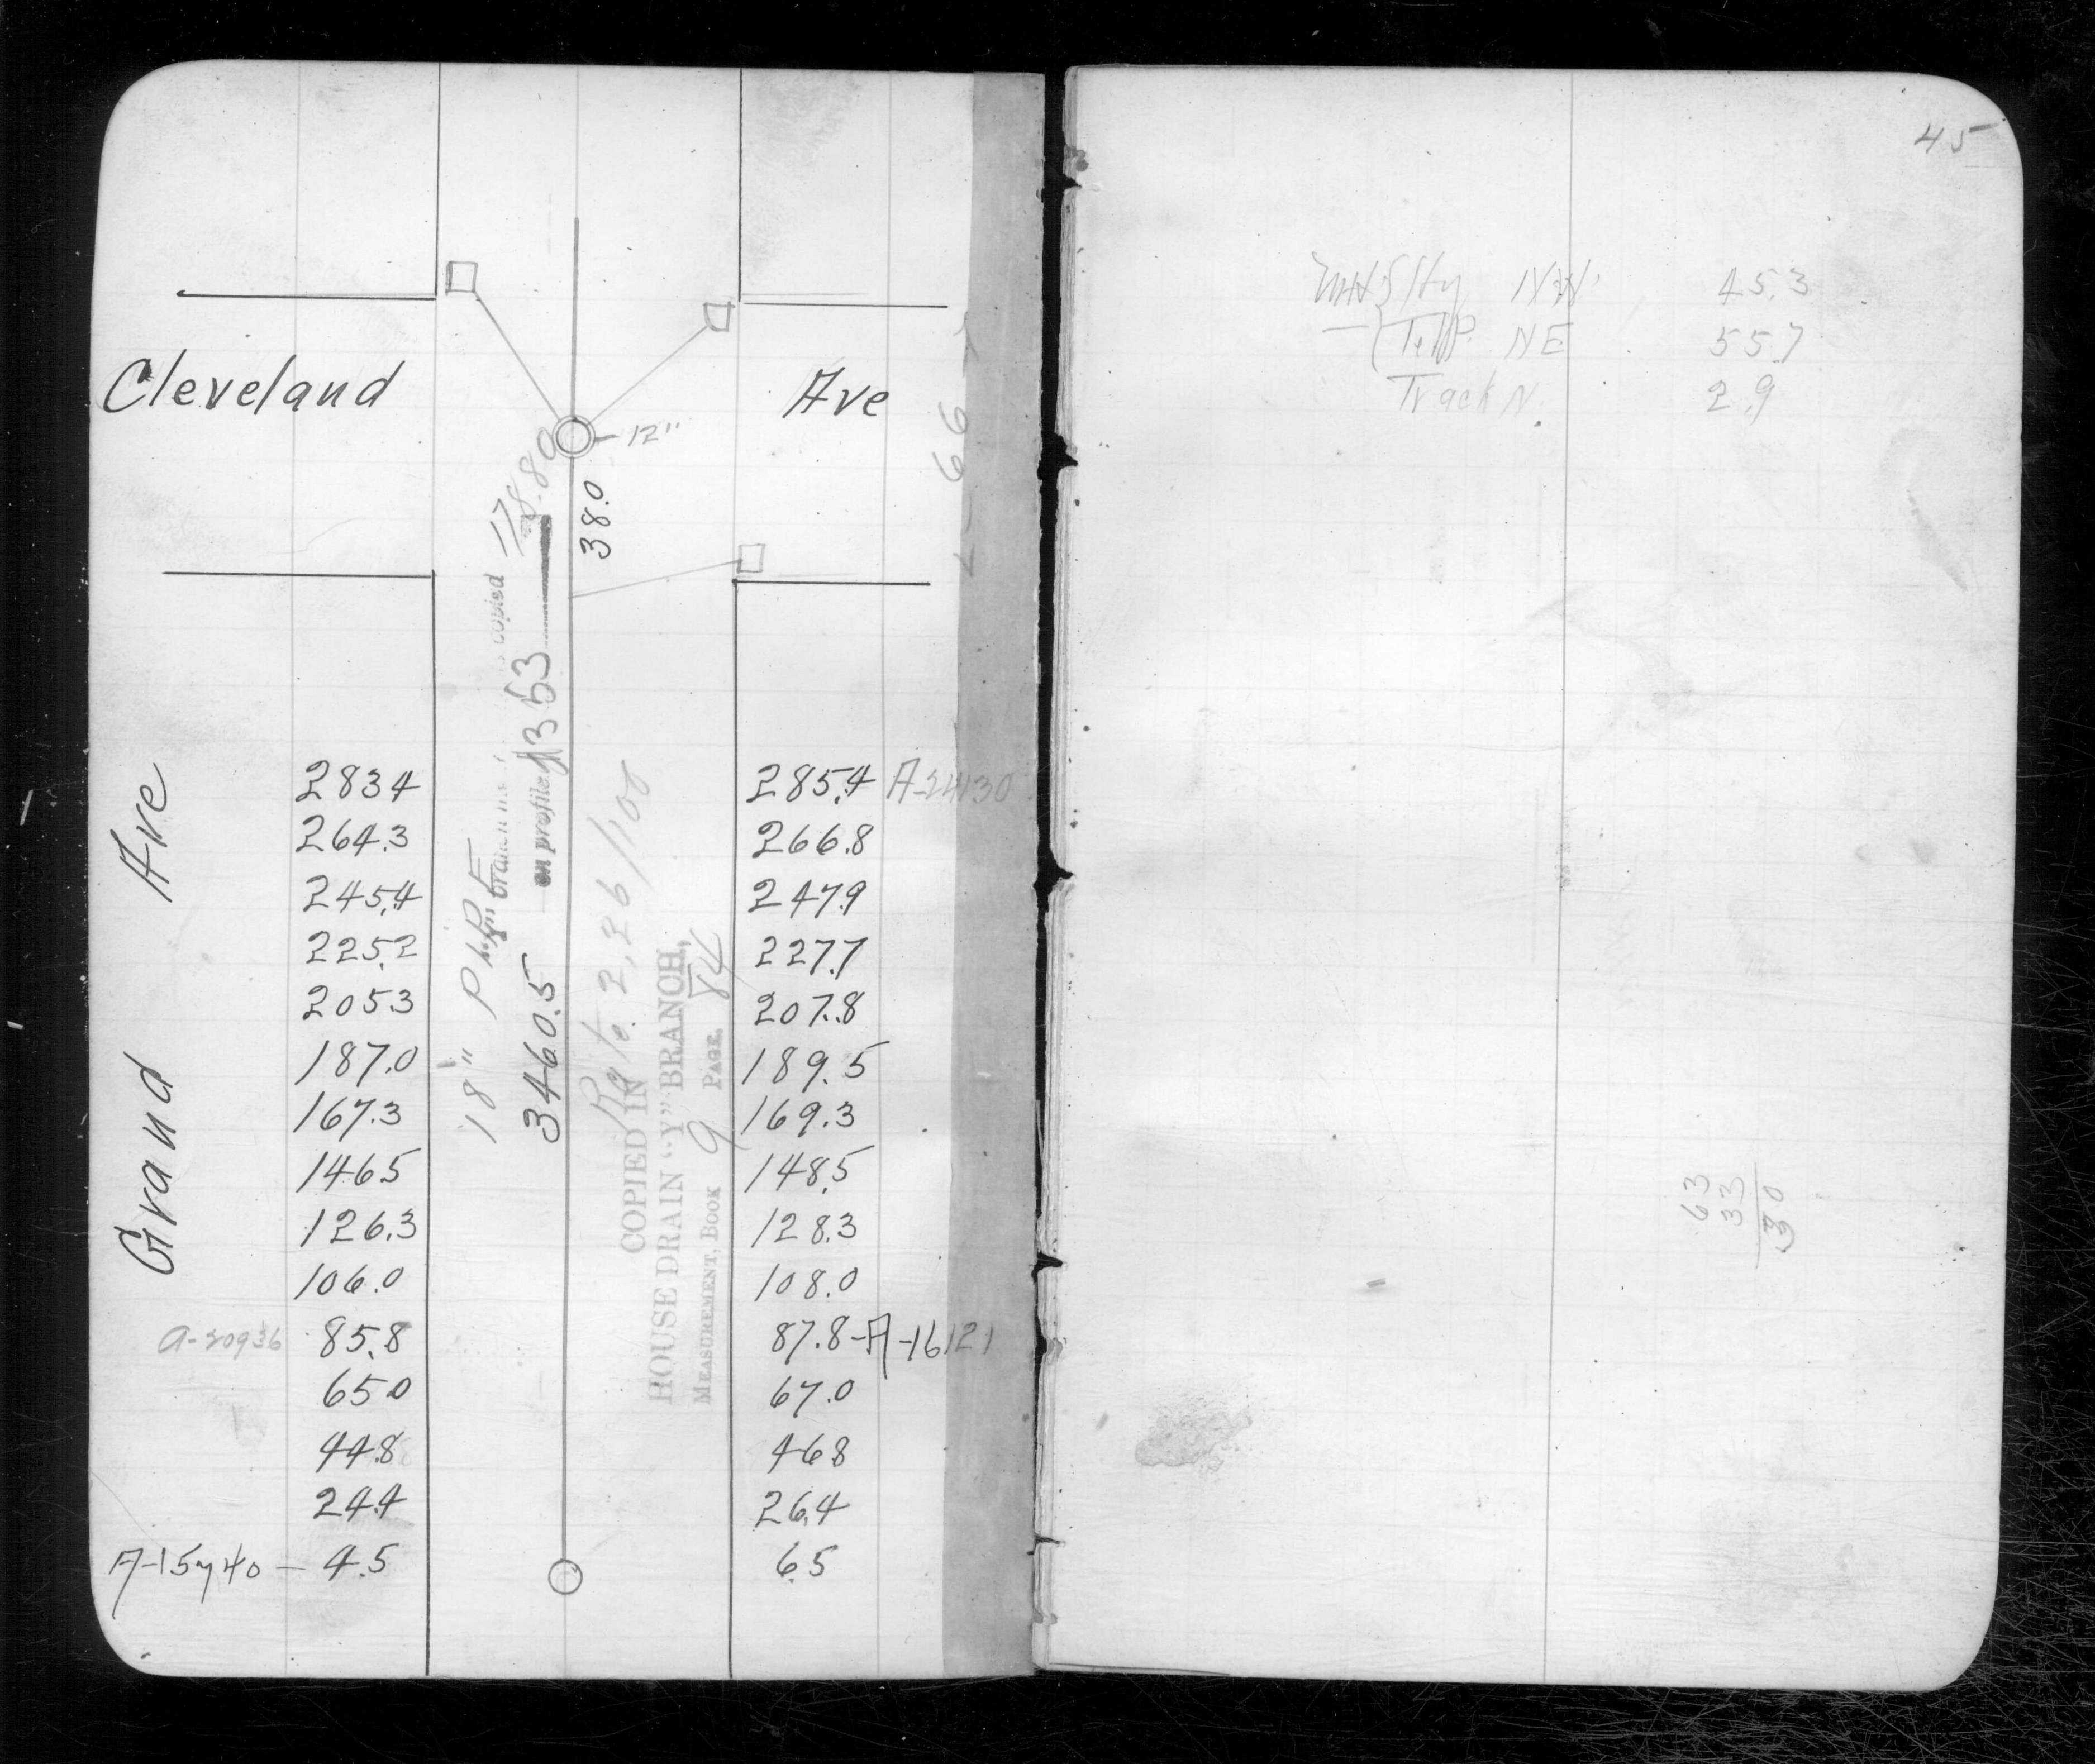 Cleveland Ave
12"
38.0
17
18.80
copied
on profile 1353
3460.5
18" PIPE
Rate 2.26/100
COPIED IN
HOUSE DRAIN "Y" BRANCH,
MEASUREMENT, BOOK 9 PAGE, 84
Grand Ave
283.4 285.4 A-24130
264.3 266.8
245.4 247.9
225.2 227.7
205.3 207.8
187.0 189.5
167.3 169.3
146.5 148.5
126.3 128.3
106.0 108.0
a-20936 85.8 87.8-A-16121
65.0 67.0
44.8 46.8
24.4 26.4
A-15740 - 4.5 6.5
45
MH NW 45.3
Tel P. NE 55.7
Track N. 2.9
63
33
30